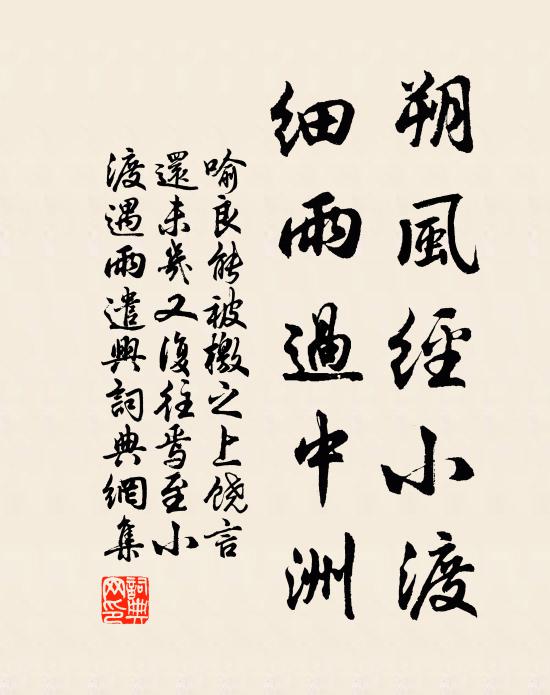 朔風經小渡
細雨過中洲
喻良能被檄之上饒言
還未幾又復往焉至小
渡遇雨遣興詞典網集
詞典網印